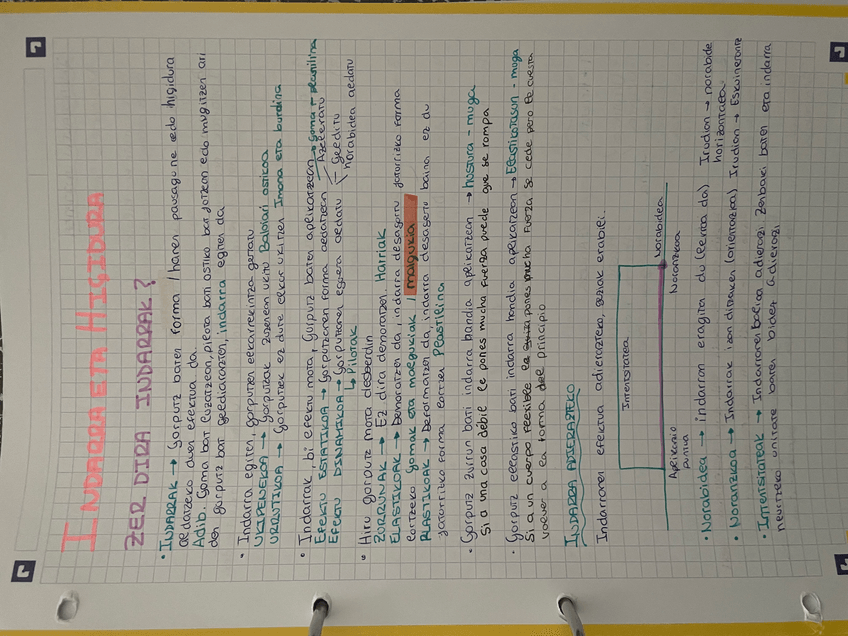 INDARRA ETA HIGIDURA
ZER DIRA INDARRAK?
• INDARRAK → Gorputz baten forma / haren pausagune edo higidura
aldatzeko duen efektua da.
Adib. Goma bat luzatzean, pilota bati ostiko bat jotzean edo mugitzen ari
den gorputz bat geldiarazten, indarra egiten da
• Indarra egiten, gorputzen elkarrekintza gertatu
UKIPENEKOA → gorputzak zuzenean ukitu Baloiari ostikoa
URRUTIKOA → Gorputzek ez dute elkar ukitzen Imana eta burdina
• Indarrak bi efektu mota, gorputz baten aplikatzean
EFEKTU ESTATIKOA → gorputzaren forma aldatzean → Goma + plastilina
EFEKTU DINAMIKOA → Gorputzaren egoera aldatu
Azeleratu
Gelditu
Norabidea aldatu
↳ Pilotak
• Hiru gorputz mota desberdin
ZURRUNAK → Ez dira demoratzen Harriak
ELASTIKOAK → Demoratzen da, indarra desagertu jatorrizko forma
lortzeko gomak eta malgukiak / malgukia
PLASTIKOAK → Deformatzen da, indarra desagertu baina ez du
jatorrizko forma lortzen Plastilina
• Gorputz zurrun bati indarra handia aplikatzean → hustura-muga
Si a una casa débil le pones mucha fuerza puede que se rompa
• Gorputz ellastiko bati indarra handia aplikatzean → Elastikotasun-muga
Si a un cuerpo flexible le pones mucha fuerza se cede pero le cuesta
volver a la forma del principio
INDARRA ADIERAZTEKO
Indarraren efektua adierazteko, geziak erabili.
Intentsitatea
Aplikazio puntua
Norabidea
Noranzkoa
• Norabidea → indarran eragiten du (lerroa da) Irudian → norabide
horizontala
• Noranzkoa → Indarrak izan ditzakeen (orientazioa) Irudian → Eskuinerantz
• Intentsitateak → Indarraren balioa adierazi zenbaki baten eta indarra
neurtzeko unitate baten bidez adierazi